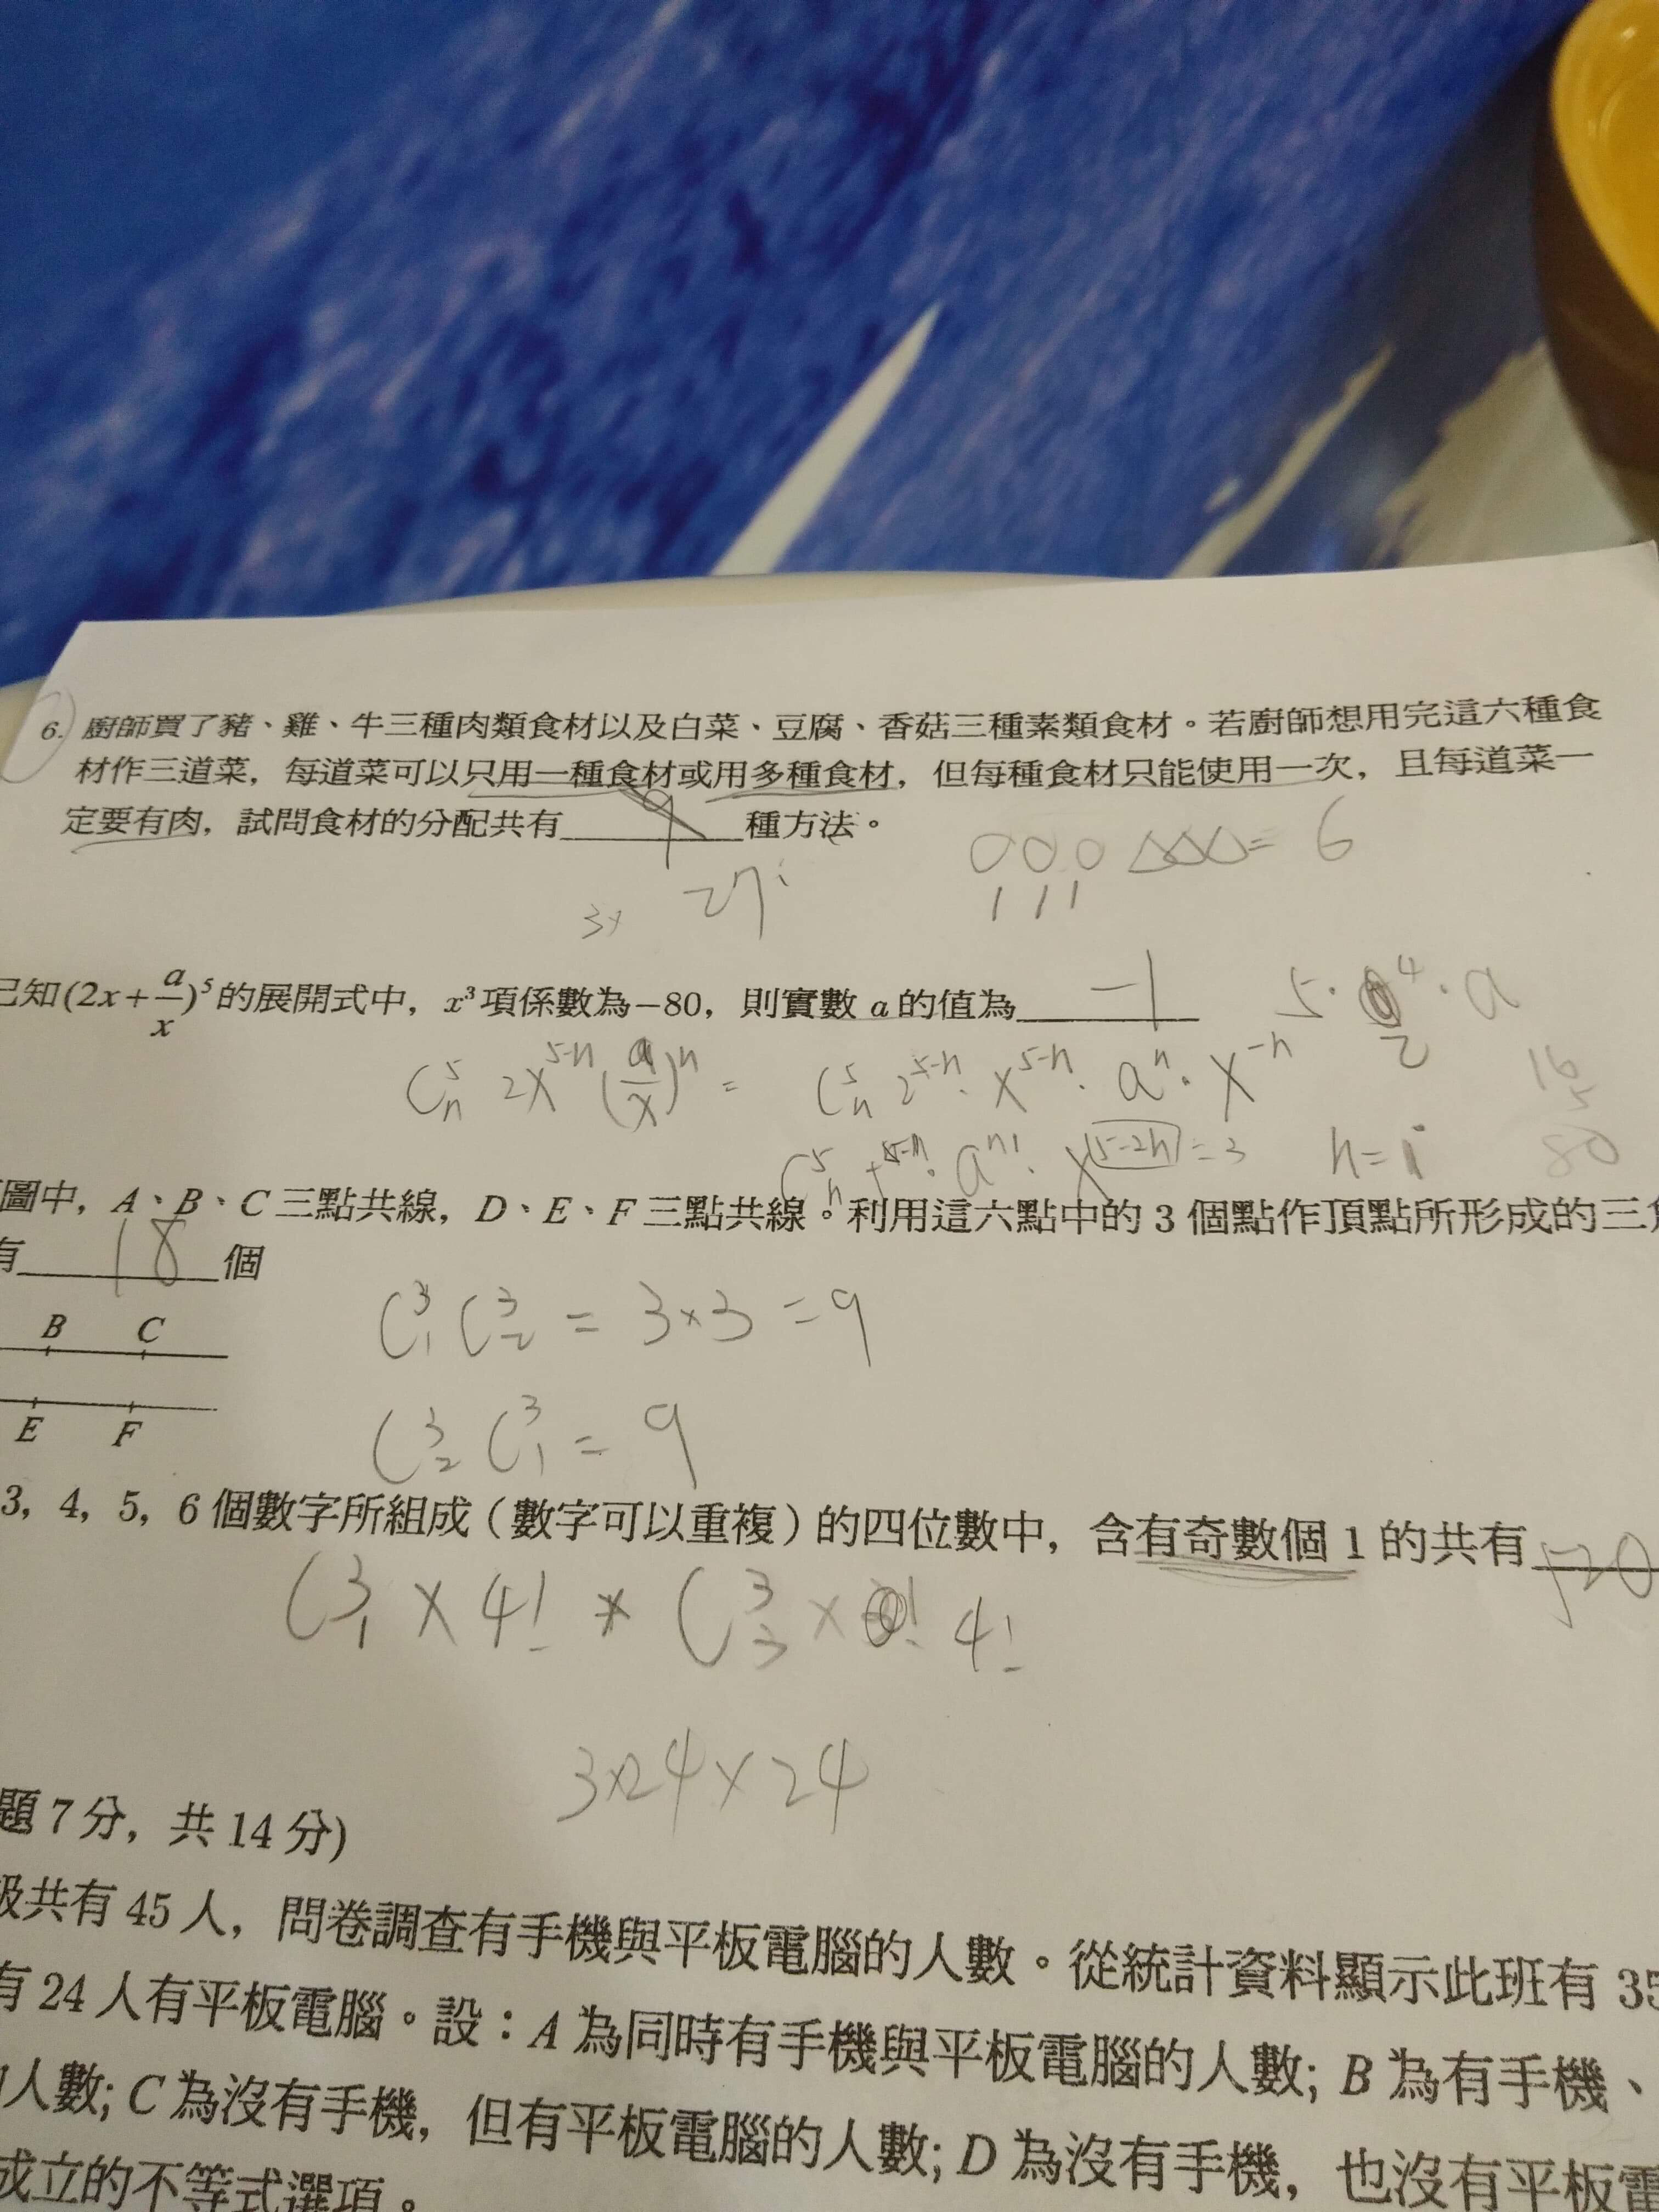 6. 廚師買了豬、雞、牛三種肉類食材以及白菜、豆腐、香菇三種素類食材。若廚師想用完這六種食
材作三道菜，每道菜可以只用一種食材或用多種食材，但每種食材只能使用一次，且每道菜一
定要有肉，試問食材的分配共有 9 種方法。
000 △△△ = 6
27
3×
已知(2x+a/x)⁵的展開式中，x³項係數為−80，則實數 a 的值為 −1
5· ⁴·a
2
C⁵ₙ 2x⁵⁻ⁿ (a/x)ⁿ = C⁵ₙ 2⁵⁻ⁿ· x⁵⁻ⁿ· aⁿ· x⁻ⁿ
16
5
80
x 5-2n = 3 n=1
圖中，A、B、C 三點共線，D、E、F 三點共線。利用這六點中的 3 個點作頂點所形成的三
有 18 個
B C
E F
C³₁ C³₂ = 3×3 = 9
C³₂ C³₁ = 9
3, 4, 5, 6 個數字所組成（數字可以重複）的四位數中，含有奇數個 1 的共有 520
C³₁ × 4! × C³₃ × 4!
3×24×24
題 7 分，共 14 分)
級共有 45 人，問卷調查有手機與平板電腦的人數。從統計資料顯示此班有 35
有 24 人有平板電腦。設：A 為同時有手機與平板電腦的人數; B 為有手機、
人數; C 為沒有手機，但有平板電腦的人數; D 為沒有手機，也沒有平板電
成立的不等式選項。